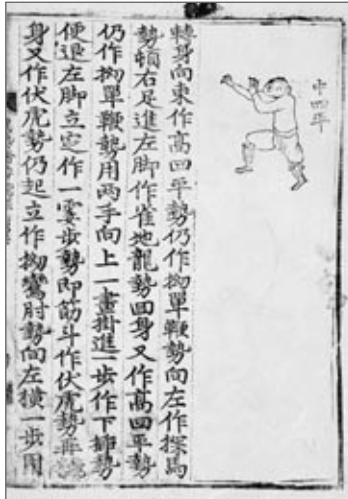 中四平
轉身向東作高四平勢仍作拗單鞭勢向左作探馬
勢頓右足進左脚作雀地龍勢回身又作高四平勢
仍作拗單鞭勢用兩手向上一畫掛進一步作下揷勢
便退左脚立定作一霎步勢即筋斗作伏虎勢再
身又作伏虎勢仍起立作拗鸞肘勢向左橫一步用